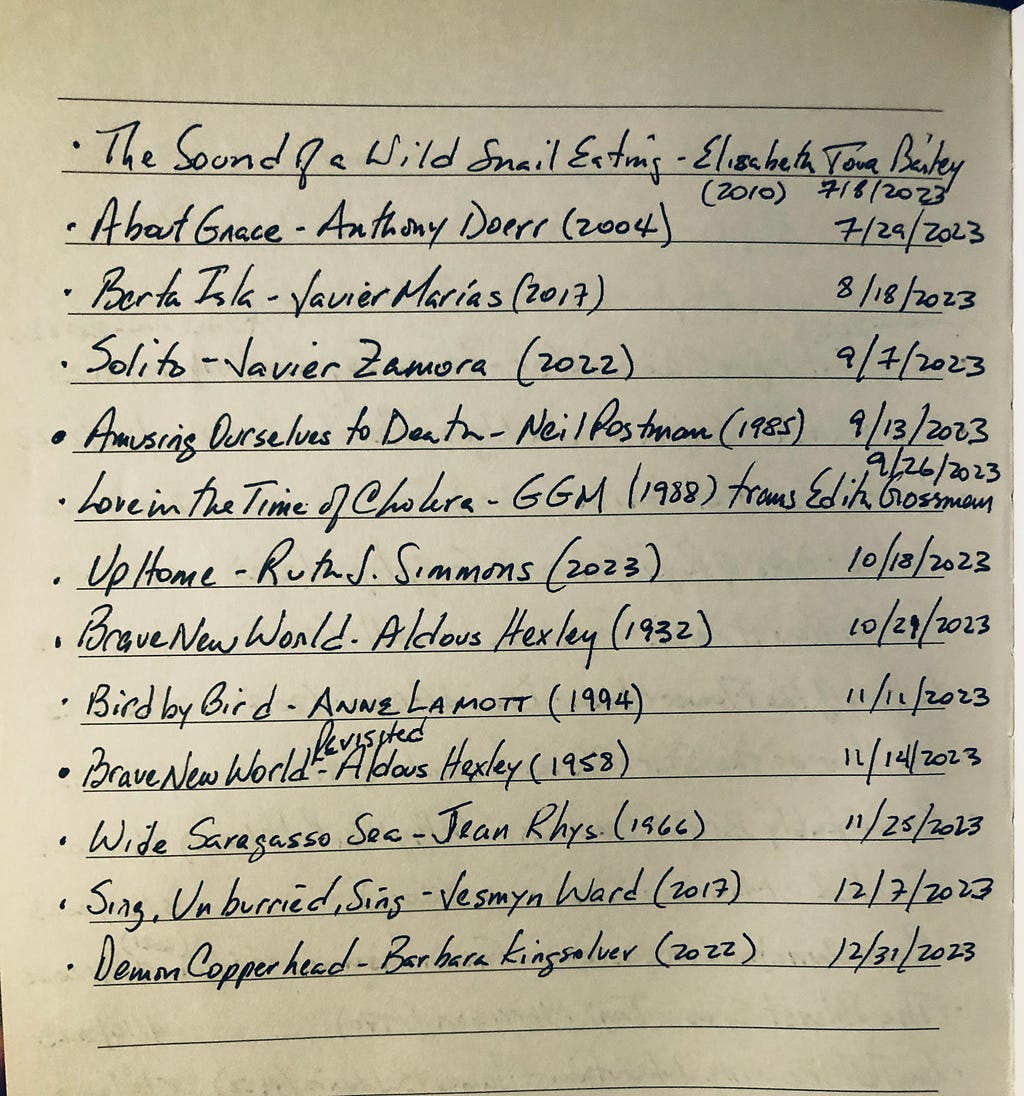 · The Sound of a Wild Snail Eating - Elisabeth Tova Bailey
(2010) 7/8/2023
· About Grace - Anthony Doerr (2004) 7/29/2023
· Berta Isla - Javier Marías (2017) 8/18/2023
· Solito - Javier Zamora (2022) 9/7/2023
· Amusing Ourselves to Death - Neil Postman (1985) 9/13/2023
9/26/2023
· Love in the Time of Cholera - GGM (1988) trans Edith Grossman
· Up Home - Ruth J. Simmons (2023) 10/18/2023
· Brave New World - Aldous Hexley (1932) 10/29/2023
· Bird by Bird - ANNE LAMOTT (1994) 11/11/2023
Revisited
· Brave New World - Aldous Hexley (1958) 11/14/2023
· Wide Saragasso Sea - Jean Rhys (1966) 11/25/2023
· Sing, Unburried, Sing - Jesmyn Ward (2017) 12/7/2023
· Demon Copperhead - Barbara Kingsolver (2022) 12/31/2023